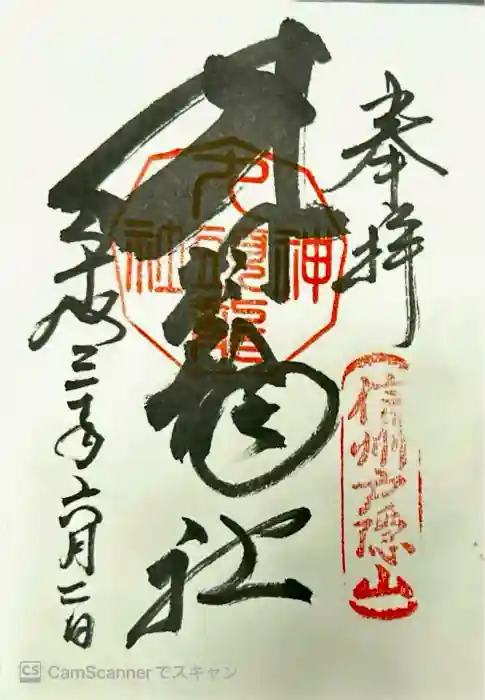 奉拝
信州戸隠山
九頭龍社
九頭龍神社
平成三年六月二日
CS CamScannerでスキャン